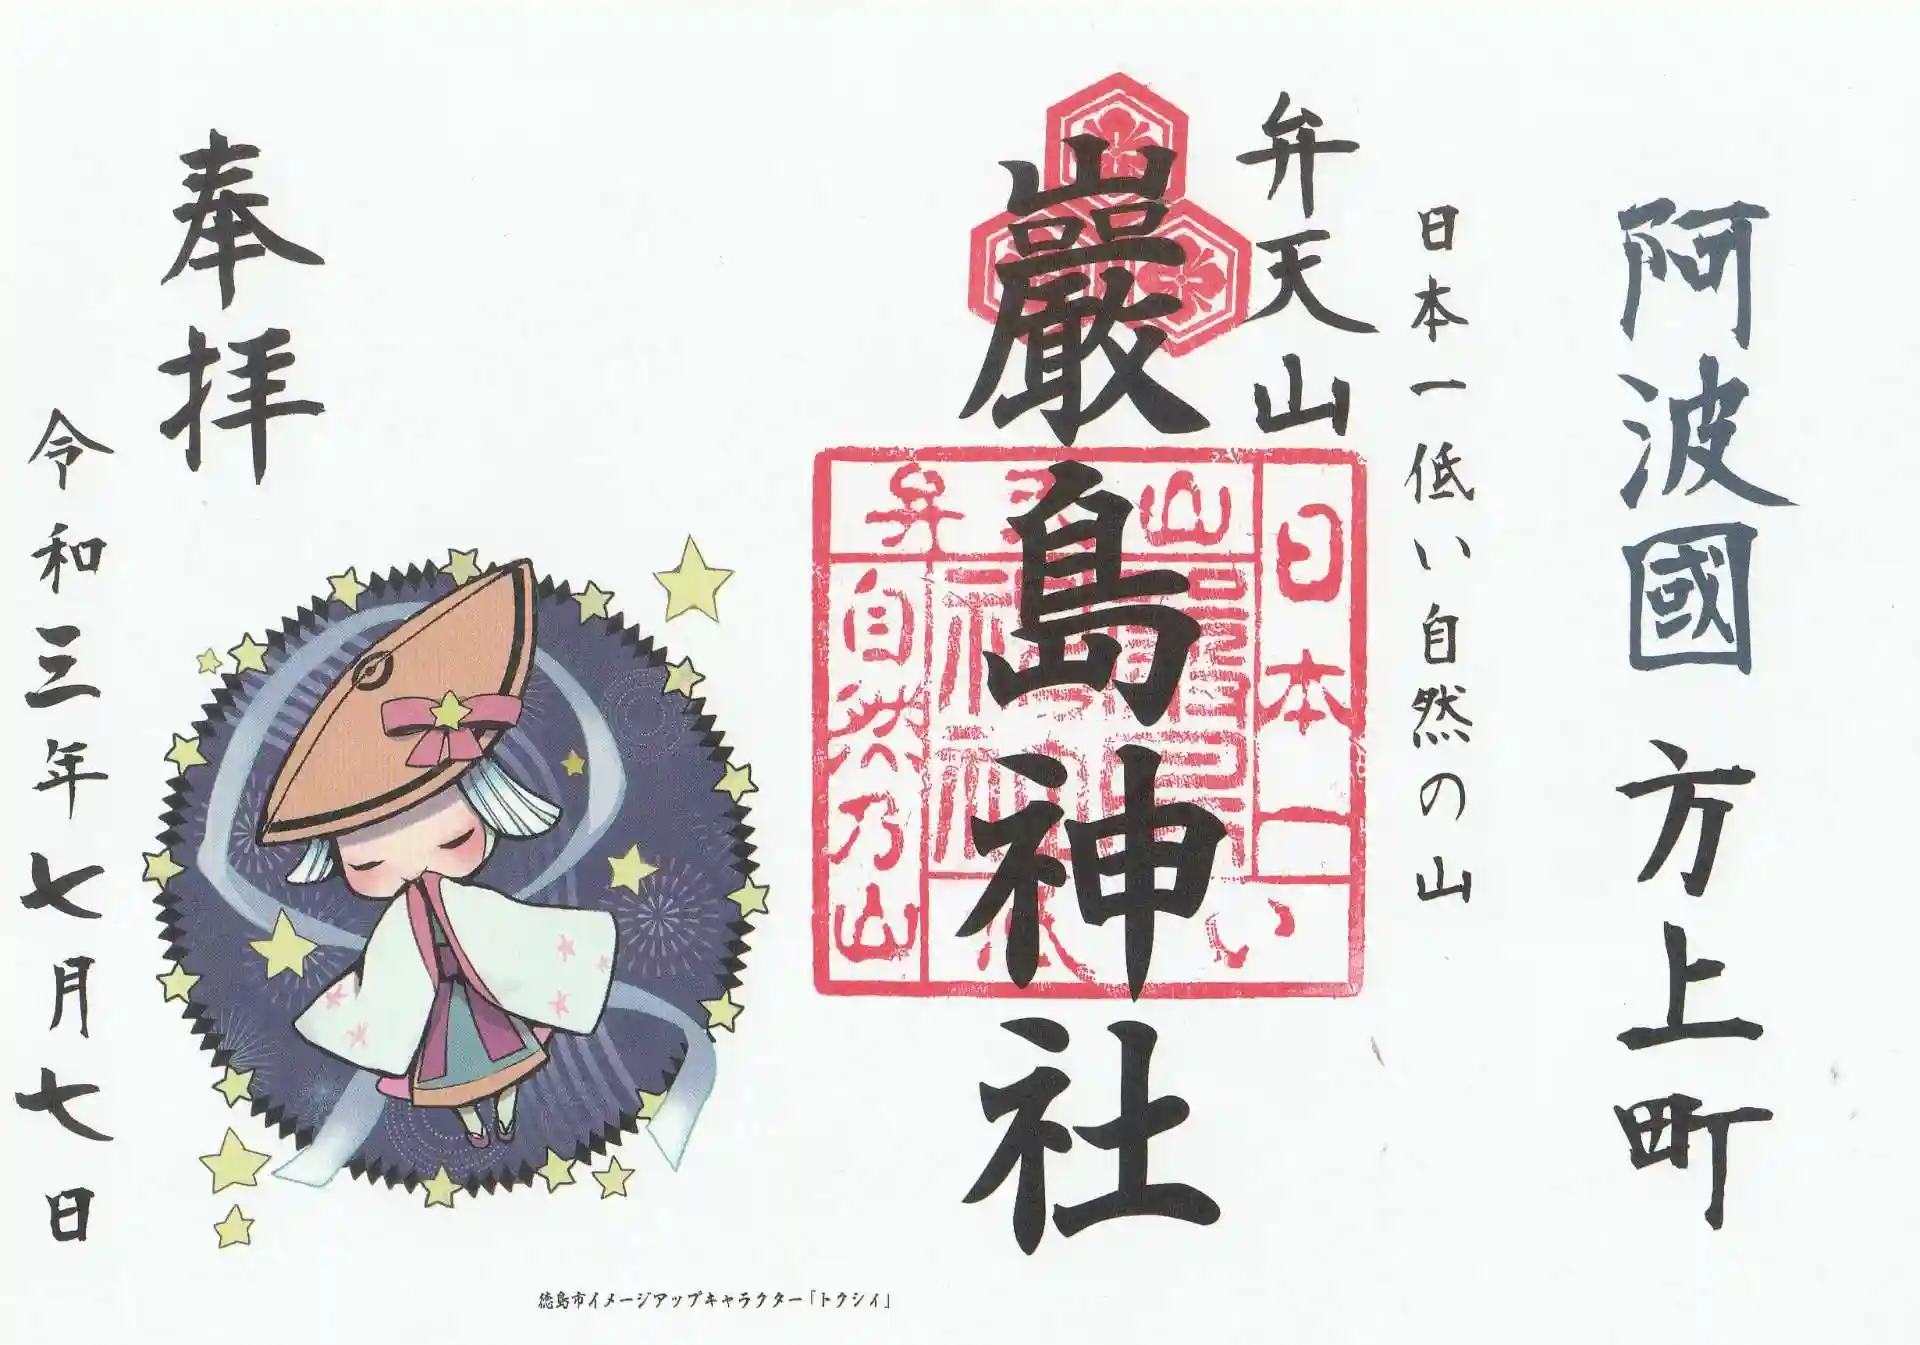 阿波國 方上町
日本一低い自然の山
弁天山
巖島神社
日本一
い
弁天山
自然乃山
奉拝
令和三年七月七日
徳島市イメージアップキャラクター「トクシイ」